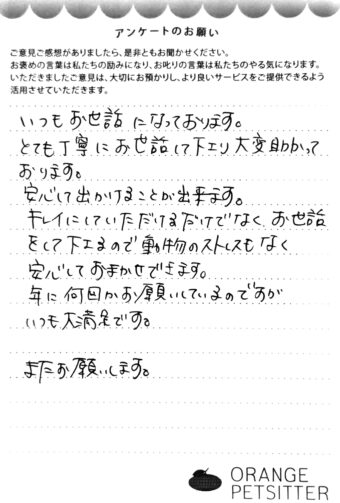 アンケートのお願い
ご意見ご感想がありましたら、是非ともお聞かせください。
お褒めの言葉は私たちの励みになり、お叱りの言葉は私たちのやる気になります。
いただきましたご意見は、大切にお預かりし、より良いサービスをご提供できるよう
活用させていただきます。
いつもお世話になっております。
とても丁寧にお世話して下エり大変助かって
おります。
安心して出かけることが出来ます。
キレイにしていただけるだけでなく お世話
をして下エるので動物のストレスもなく
安心しておまかせできます。
年に何回かお願いしているのですが
いつも大満足です。
またお願いします。
ORANGE
PETSITTER